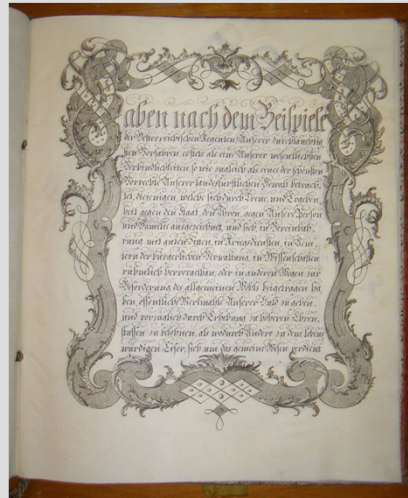 aben nach dem Beispiele
der Oesterreichischen Regenten, Unserer durchlauchtig,
sten Vorfahren, erstens als eine Unserer wesentlichsten
Verbindlichkeiten, so wie zugleich als eines der schönsten
Vorrechte Unserer landesfürstlichen Gewalt betrach,
tet, diejenigen, welche sich durch Treue, und Ergeben,
heit gegen den Staat, den Thron, gegen Unsere Person
und Familie ausgezeichnet, und sich, in Vereinba,
rung mit guten Sitten, in Kriegsdiensten, in Aem,
tern der bürgerlichen Verwaltung, in Wissenschaften
rühmlich hervorgethan, oder in anderen Wegen zur
Beförderung des allgemeinen Wohls beigetragen ha
ben, öffentliche Merkmahle Unserer Huld zu geben,
und vorzüglich durch Erhebung zu höheren Ehren,
stuffen zu belohnen, als wodurch Andere zu dem lobens
würdigen Eifer, sich um das gemeine Wesen verdient